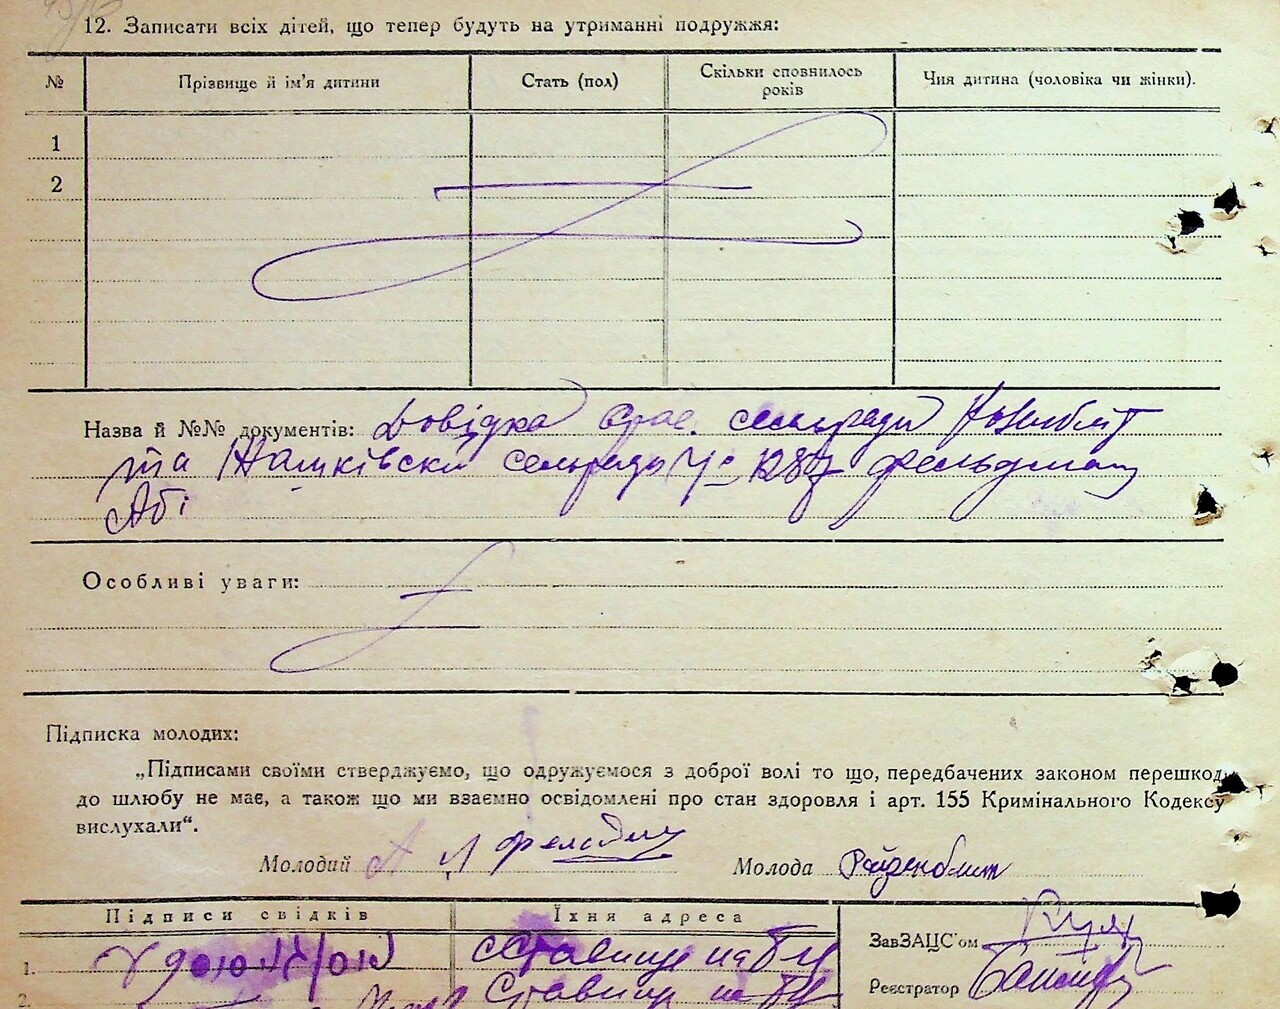 12. Записати всіх дітей, що тепер будуть на утриманні подружжя:
№ Прізвище й ім'я дитини Стать (пол) Скільки сповнилось років Чия дитина (чоловіка чи жінки).
1
2
Назва й №№ документів: Довідка сельради
та сельради
Абі
Особливі уваги:
Підписка молодих:
„Підписами своїми стверджуємо, що одружуємося з доброї волі то що, передбачених законом перешкод
до шлюбу не має, а також що ми взаємно освідомлені про стан здоровля і арт. 155 Кримінального Кодексу
вислухали“.
Молодий Молода
Підписи свідків Їхня адреса
ЗавЗАЦС'ом
1. Ставище
Реєстратор
2. Ставище